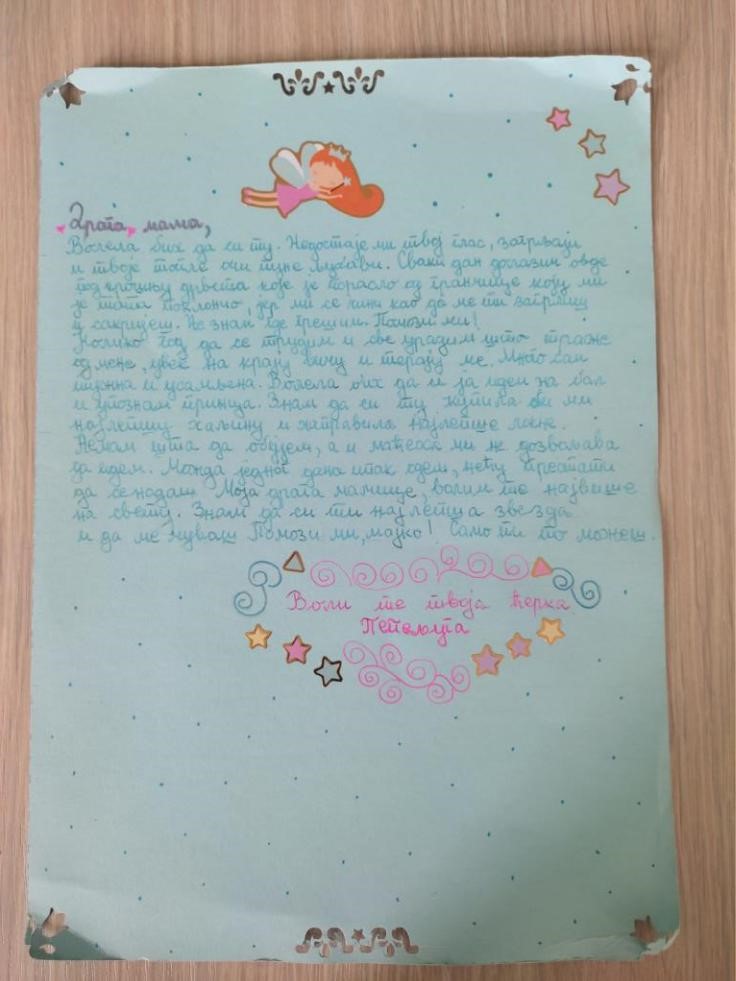 Драга мама,
Волела бих да си ту. Недостаје ми твој глас, загрљаји
и твоје топле очи пуне љубави. Сваки дан долазим овде
под крошњу дрвета које је порасло од гранчице коју ми
је тата поклонио, јер ми се чини као да ме ти загрлиш
и сакријеш. Не знам где грешим. Помози ми!
Колико год да се трудим и све урадим што траже
од мене, увек на крају вичу и терају ме. Много сам
тужна и усамљена. Волела бих да и ја идем на бал
и упознам принца. Знам да си ту купила би ми
најлепшу хаљину и направила најлепше
Немам шта да обујем, а и маћеха ми не дозвољава
да идем. Можда једног дана ипак одем, нећу престати
да се надам. Моја драга мамице, волим те највише
на свету. Знам да си ти најлепша звезда
и да ме чуваш. Помози ми, мајко! Само ти то можеш.
Воли те твоја ћерка
Пепељуга